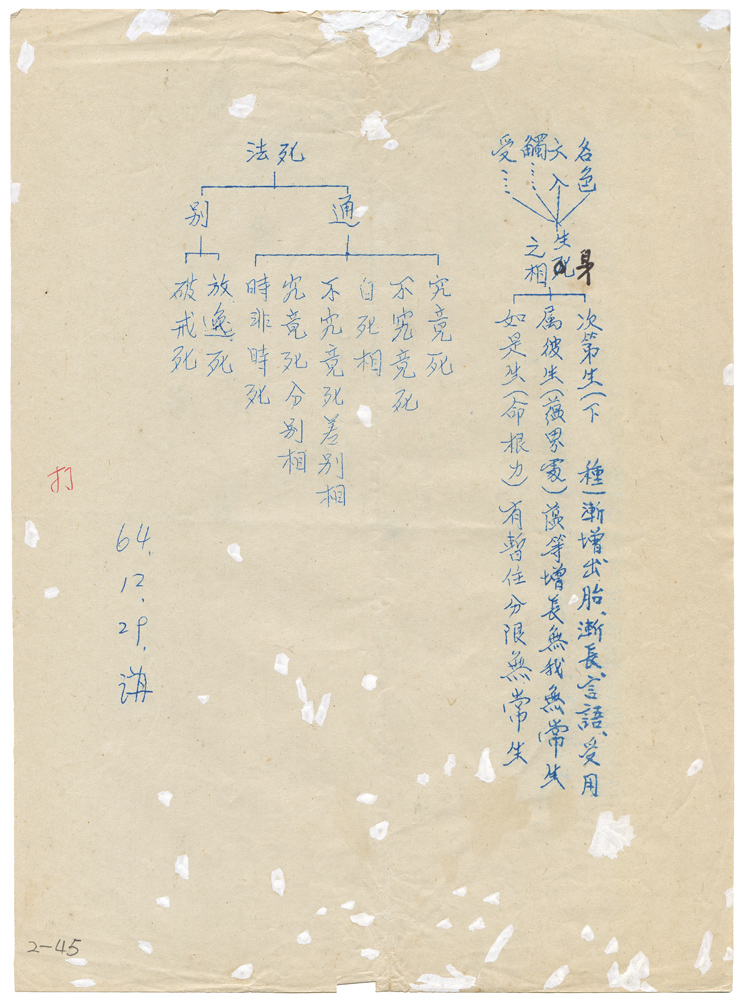 名色
六入
觸
受
生死身
之相
次第生(下種)漸增出胎、漸長、言語、受用
屬彼生(蘊界處)蘊等增長無我無常生
如是生(命根力)有暫住分限無常生
法死
通
究竟死
不究竟死
自死相
不究竟死差別相
究竟死分別相
時非時死
別
放逸死
破戒死
64.
12.
29.
講
打
2-45